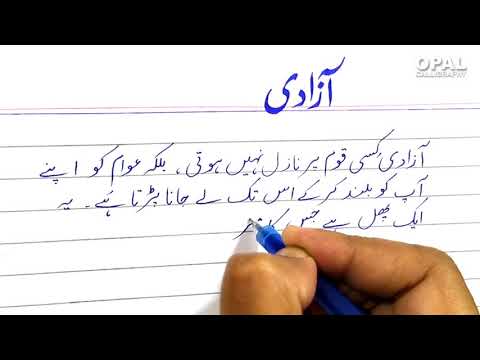 OPAL
CALLIGRAPHY
آزادی
آزادی کسی قوم پر نازل نہیں ہوتی ، بلکہ عوام کو اپنے
آپ کو بلند کر کے اس تک لے جانا پڑتا ہے۔ یہ
ایک پھل ہے جس